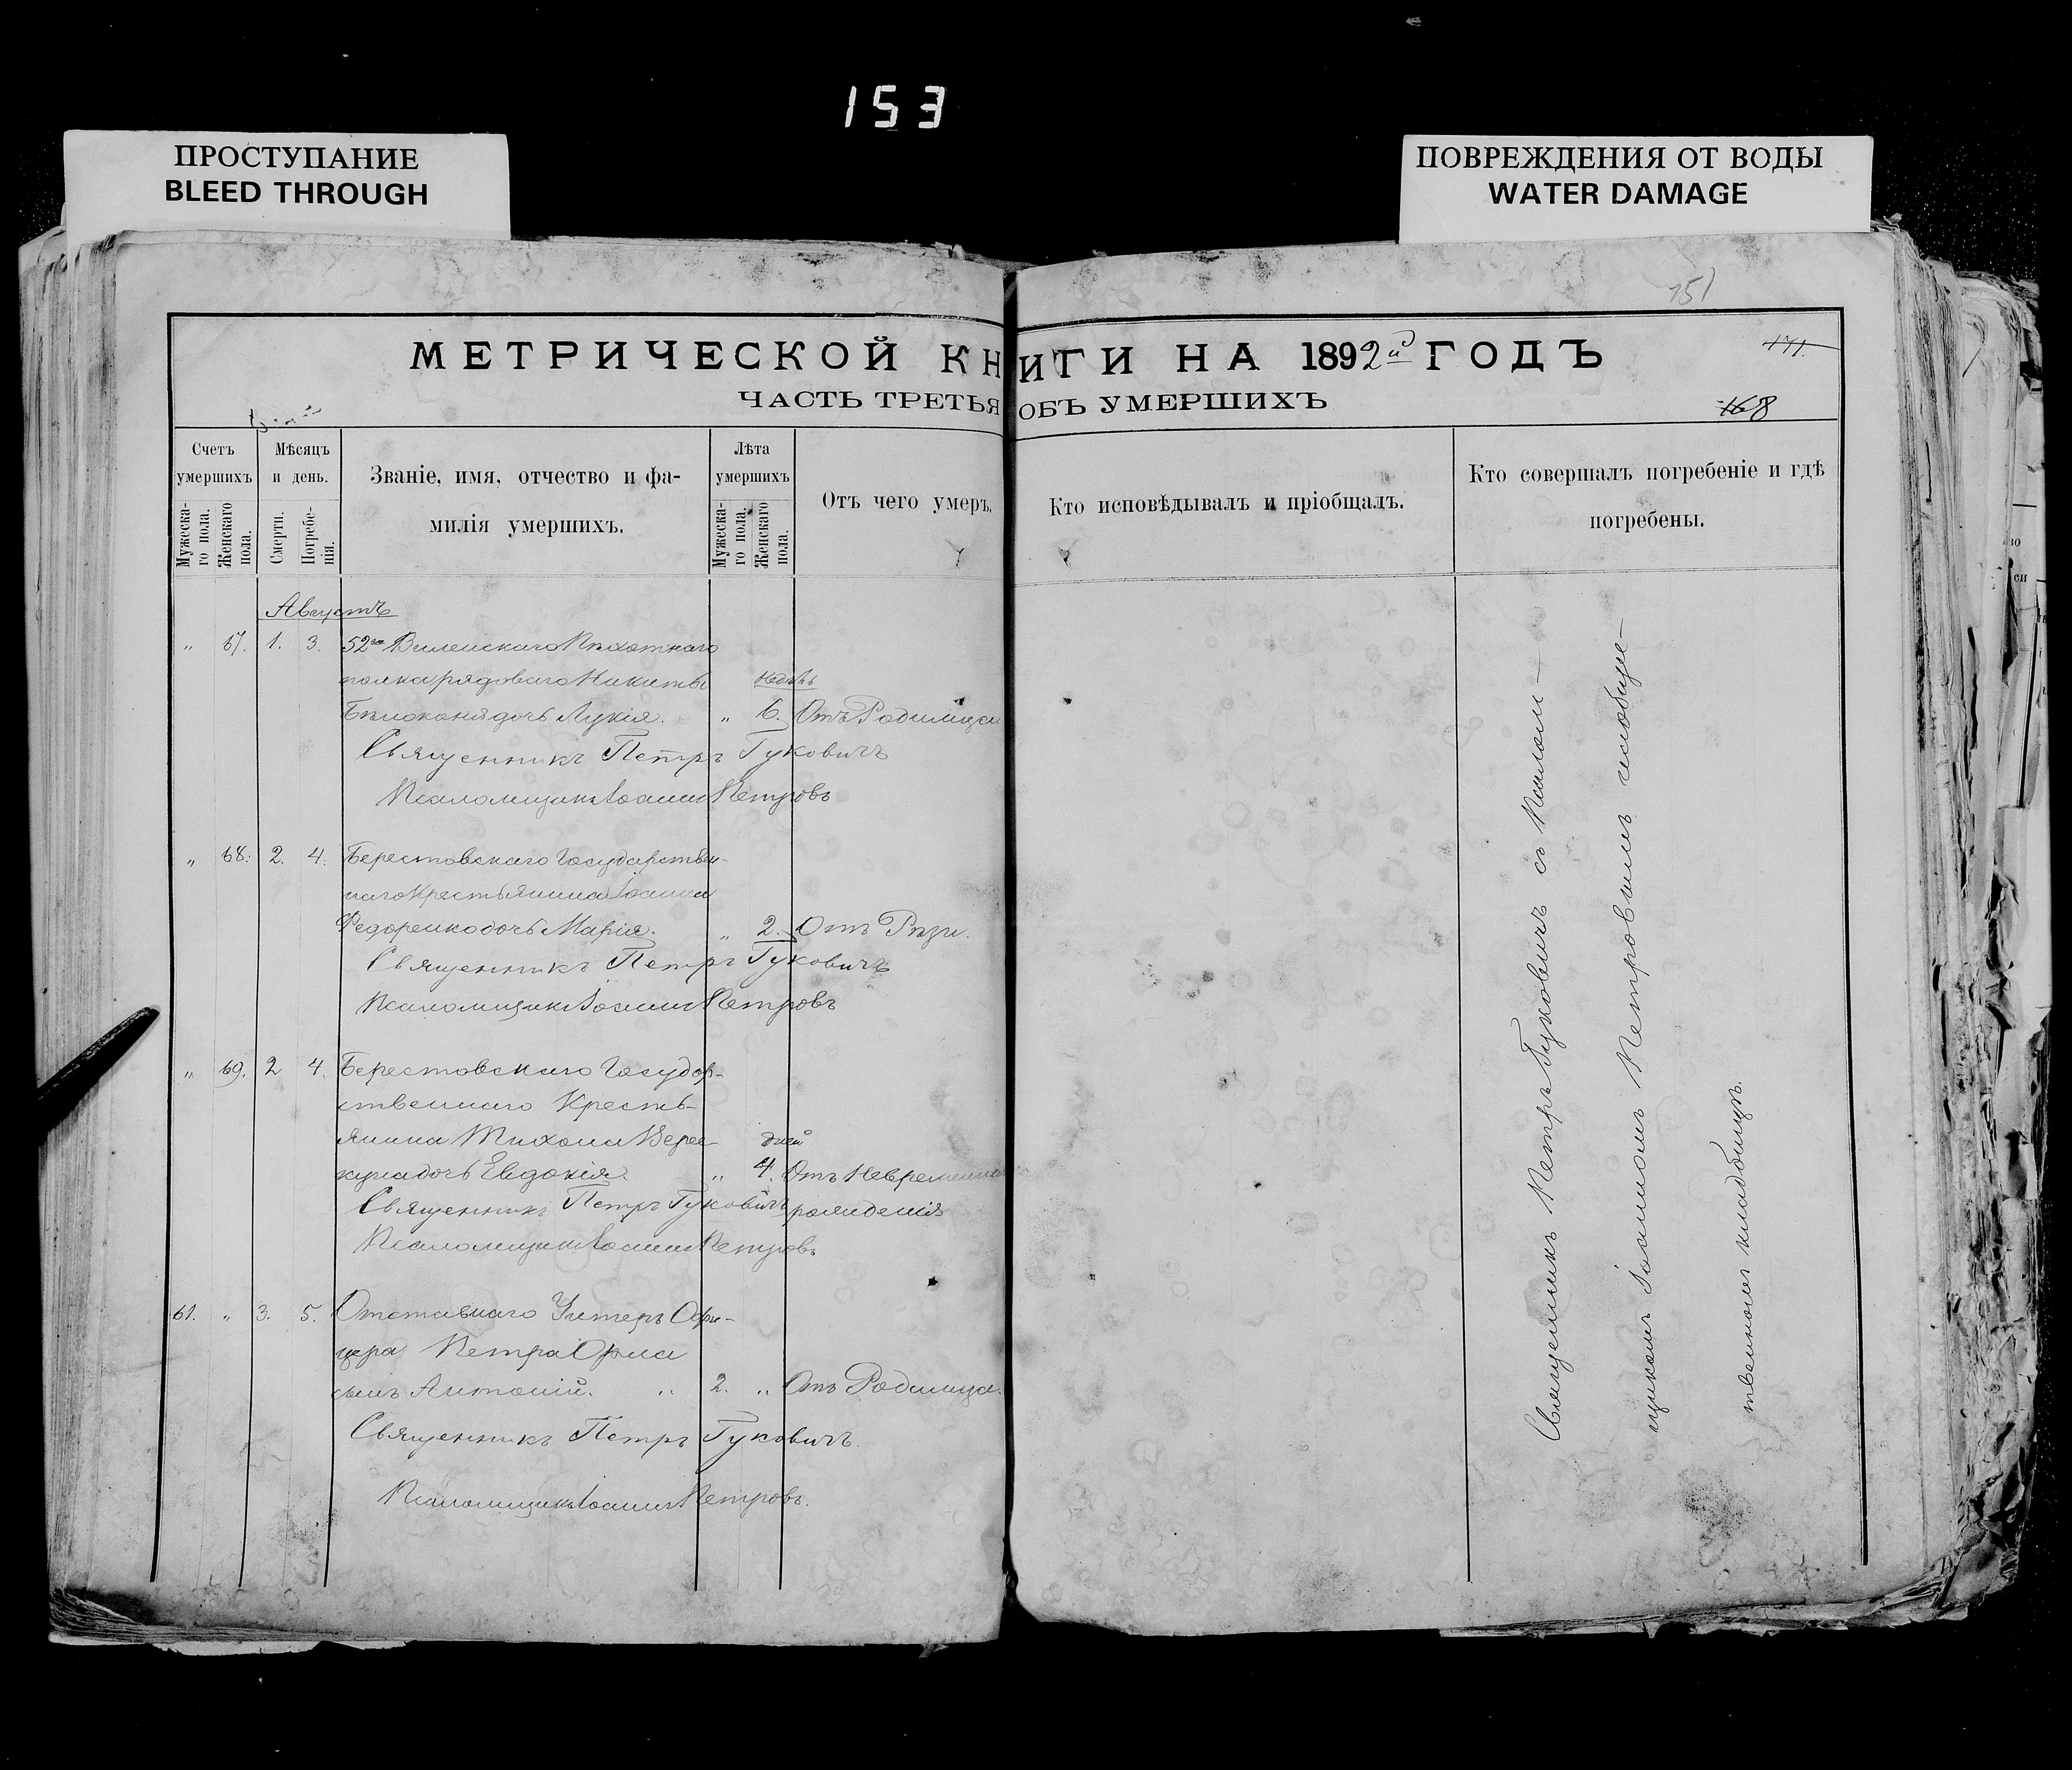 153
ПРОСТУПАНИЕ
BLEED THROUGH
ПОВРЕЖДЕНИЯ ОТ ВОДЫ
WATER DAMAGE
151
МЕТРИЧЕСКОЙ КНИГИ НА 1892й ГОДЪ
171.
ЧАСТЬ ТРЕТЬЯ ОБЪ УМЕРШИХЪ
168
Счетъ умершихъ.
Мужеска-го пола.
Женскаго пола.
Мѣсяцъ и день.
Смерти.
Погребе-нія.
Званіе, имя, отчество и фа-
милія умершихъ.
Лѣта умершихъ
Мужеска-го пола.
Женскаго пола.
Отъ чего умеръ.
Кто исповѣдывалъ и пріобщалъ.
Кто совершалъ погребеніе и гдѣ
погребены.
Августъ
„ 67. 1. 3. 52го Виленскаго Пѣхотнаго
полка рядоваго Никиты недѣль
дочь Лукія. „ 6. Отъ Родимца
Священникъ Петръ Гуковичъ
Псаломщикъ Іоаннъ Петровъ
„ 68. 2. 4. Берестовскаго Государствен-
наго Крестьянина Іоанна
Федоренко дочь Марія. „ 2. Отъ Рѣзи.
Священникъ Петръ Гуковичъ
Псаломщикъ Іоаннъ Петровъ
„ 69. 2 4. Берестовскаго Государ-
ственнаго Кресть-
янина Тихона дней
дочь Евдокія. „ 4. Отъ
Священникъ Петръ Гуковичъ рожденія
Псаломщикъ Іоаннъ Петровъ
61. „ 3. 5. Отставнаго Унтеръ Офи-
цера Петра
сынъ Антоній. „ 2. „ Отъ Родимца.
Священникъ Петръ Гуковичъ.
Псаломщикъ Іоаннъ Петровъ.
Священникъ Петръ Гуковичъ съ Псалом-
щикомъ Іоанномъ Петровымъ на общес-
твенномъ кладбищѣ.